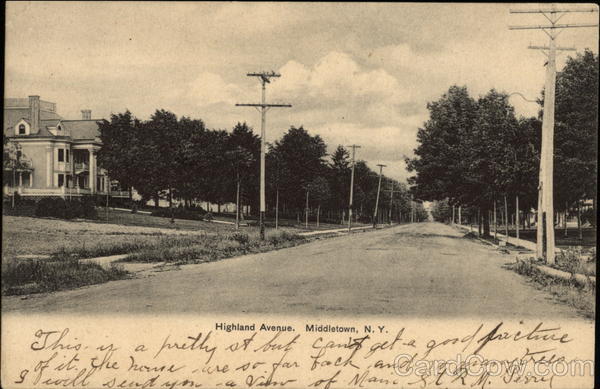 Highland Avenue. Middletown, N. Y.
This is a pretty st but can't get a good picture
of it the houses are so far back and so many trees
I will send you a view of Main St.
CardCow.com